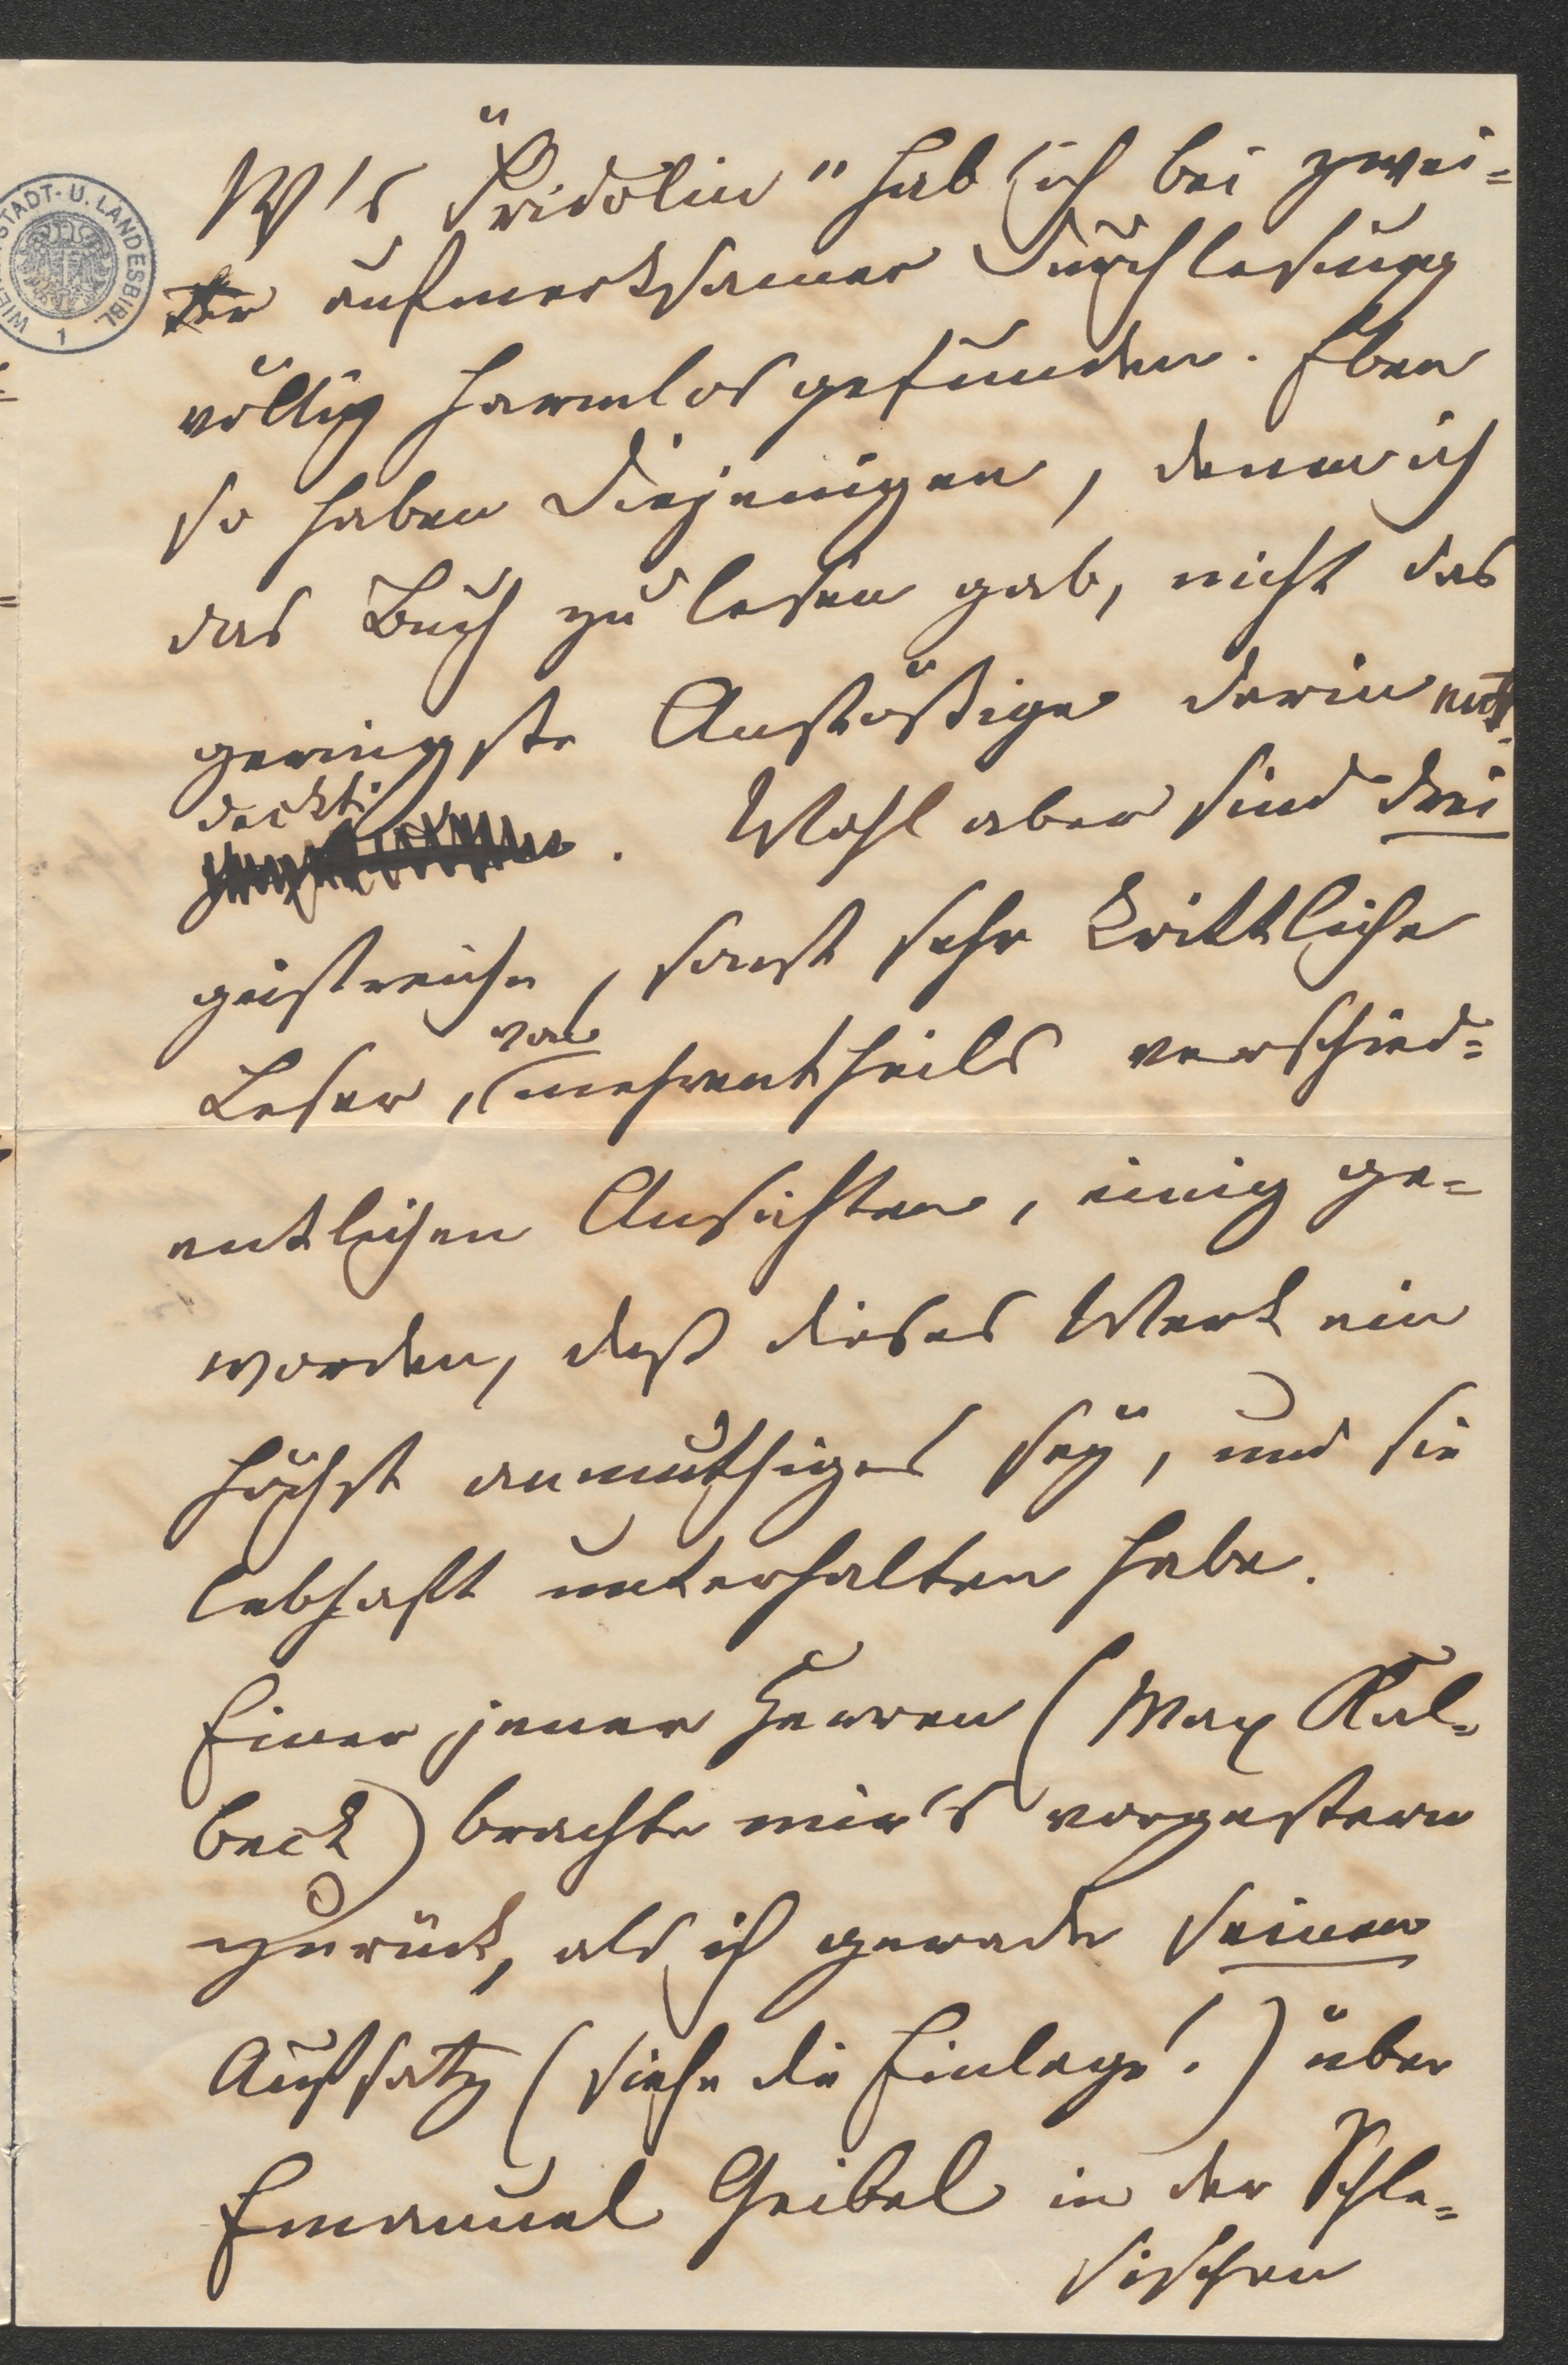 W's "Fridolin" hab ich bei zwei=
ter aufmerksamer Durchlesung
völlig harmlos gefunden. Eben
so haben Diejenigen, denen ich
das Buch zu lesen gab, nicht das
geringste Anstößige darin ent=
deckt.
. Wohl aber sind drei
geistreiche, sonst sehr krittliche
von
Leser, mehrentheils verschied=
entlichen Ansichten, einig ge=
worden, daß dieses Werk ein
höchst anmuthiges seÿ, und sie
lebhaft unterhalten habe.
Einer jener Herren (Max Kal=
beck) brachte mir's vorgestern
zurück, als ich gerade seinen
Aufsatz (siehe die Einlage!) über
Emanuel Geibel in der Schle=
sischen
WIENER STADT- U. LANDESBIBL.
1